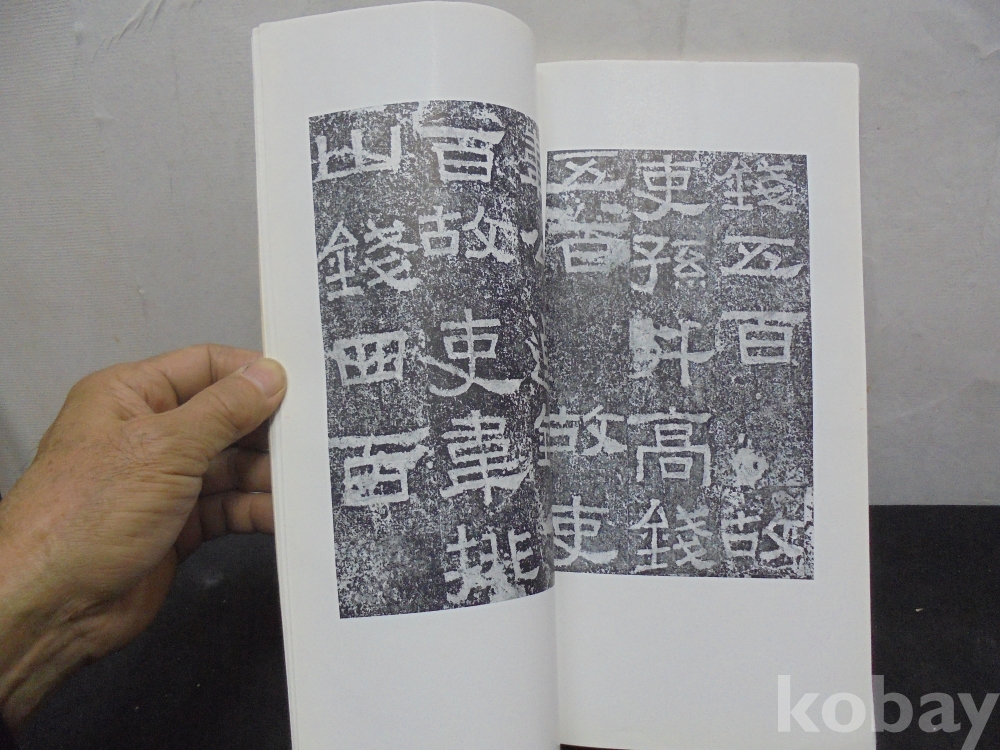 錢五百故
吏孫升高錢
五百故吏
百故吏韋排
山錢四百
kobay